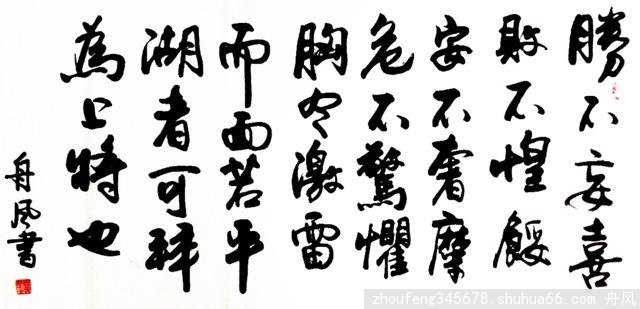 勝不妄喜
敗不惶餒
安不奢摩
危不驚懼
胸有激雷
而面若平
湖者可拜
為上將也
舟風書
zhoufeng345678.shuhua66.com 舟风